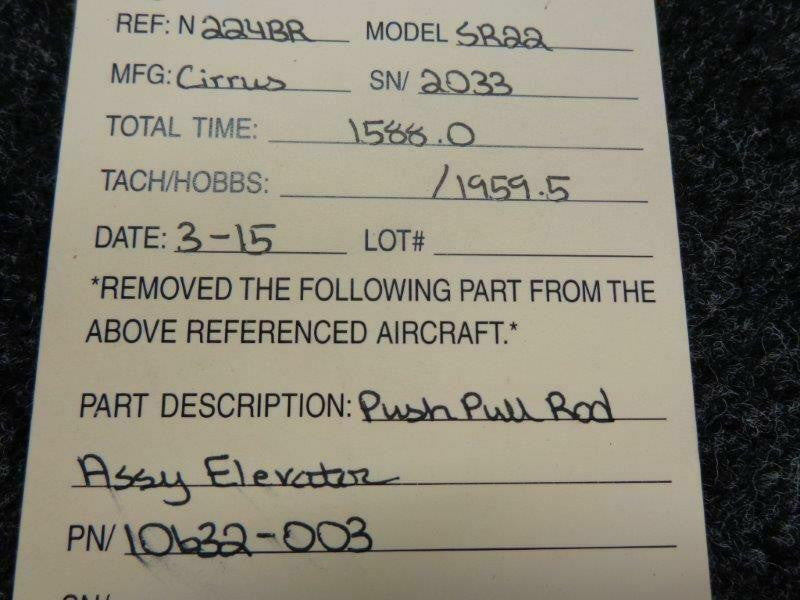 REF: N 224BR MODEL SR22
MFG: Cirrus SN/ 2033
TOTAL TIME: 1588.0
TACH/HOBBS: /1959.5
DATE: 3-15 LOT#
*REMOVED THE FOLLOWING PART FROM THE
ABOVE REFERENCED AIRCRAFT.*
PART DESCRIPTION: Push Pull Rod
Assy Elevator
PN/ 10632-003
SN/